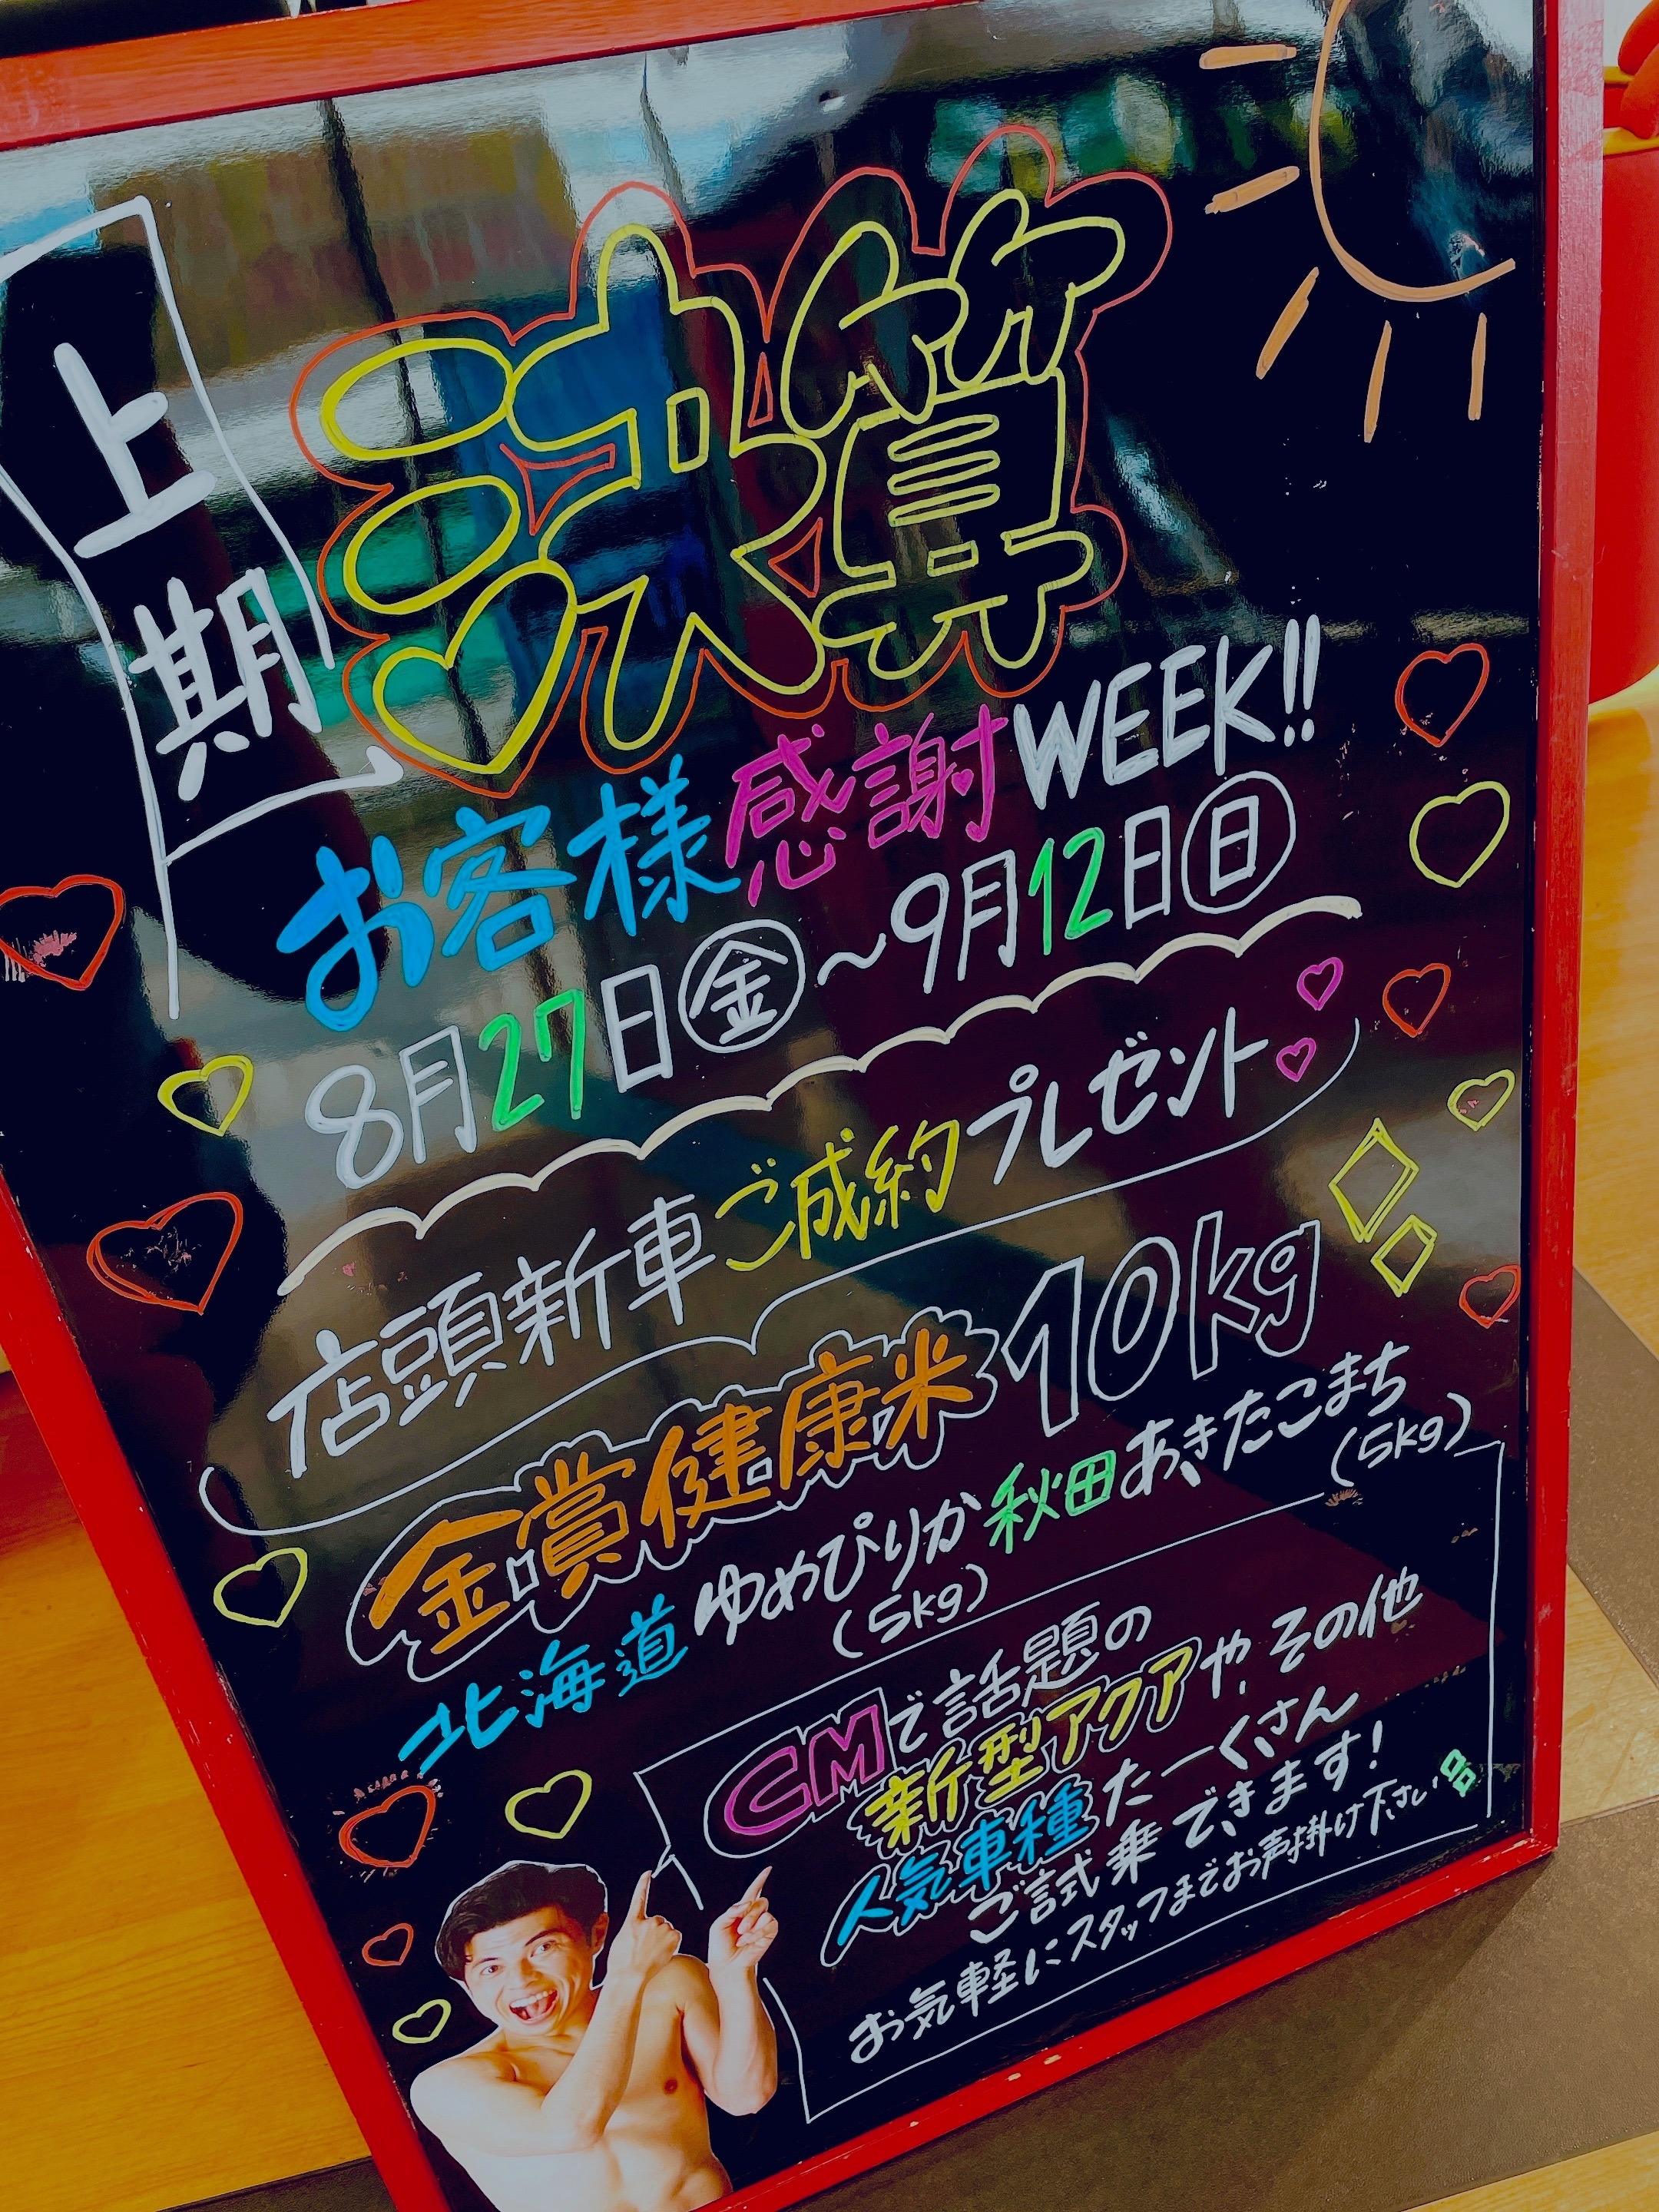 上期
決算
お客様感謝WEEK!!
8月27日㊎～9月12日㊐
店頭新車ご成約プレゼント
金賞健康米10kg
北海道ゆめぴりか秋田あきたこまち
(5kg)
(5kg)
CMで話題の
新型アクアや、その他
人気車種たーくさん
ご試乗できます!
お気軽にスタッフまでお声掛け下さい